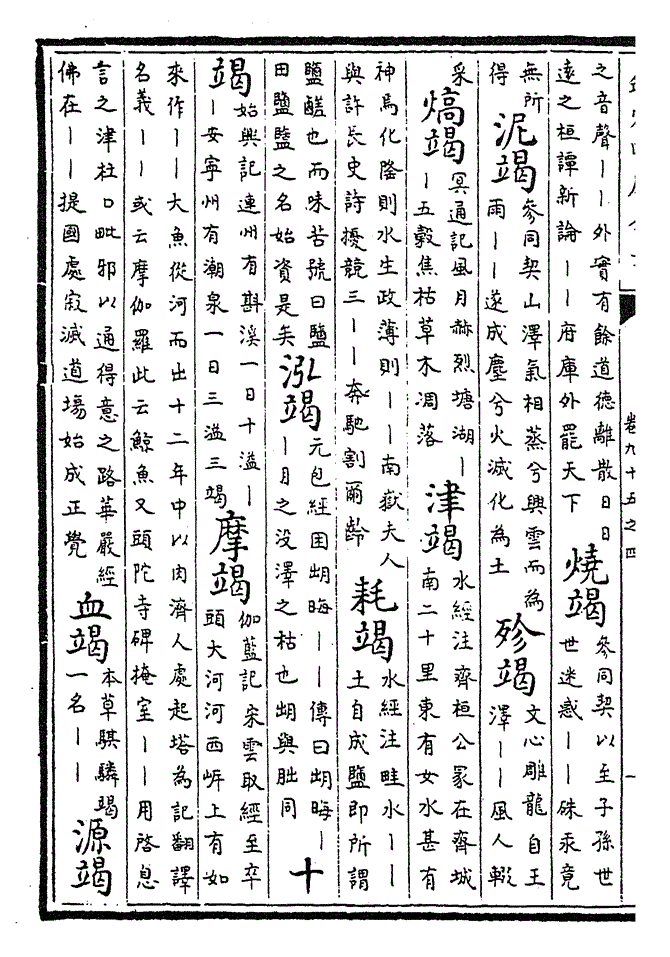 卷九十五之四
一
之音聲——外實有餘道德離散日日
遠之桓譚新論——府庫外罷天下
燒竭
參同契以至子孫世
世迷惑——硃汞竟
無所
得
泥竭
參同契山澤氣相蒸兮興雲而為
雨——遂成塵兮火滅化為土
殄竭
文心雕龍自王
澤——風人輟
采
熇竭
冥通記風月赫烈塘湖—
—五穀焦枯草木凋落
津竭
水經注齊桓公冢在齊城
南二十里東有女水甚有
神焉化隆則水生政薄則——南嶽夫人
與許長史詩擾競三——奔馳割爾齡
耗竭
水經注畦水——
土自成鹽即所謂
鹽鹺也而味苦號曰鹽
田鹽盬之名始資是矣
泓竭
元包經䎳晦——傳曰䎳晦—
—月之没澤之枯也䎳與朏同
十
竭
始興記連州有斟溪一日十溢—
—安寧州有潮泉一日三溢三竭
摩竭
伽藍記宋雲取經至卒
頭大河河西㟁上有如
來作——大魚從河而出十二年中以肉濟人處起塔為記翻譯
名義——或云摩伽羅此云鯨魚又頭陀寺碑掩室——用啓息
言之津杜口毗邪以通得意之路華嚴經
佛在——提國處寂滅道場始成正覺
血竭
本草騏驎竭
一名——
源竭